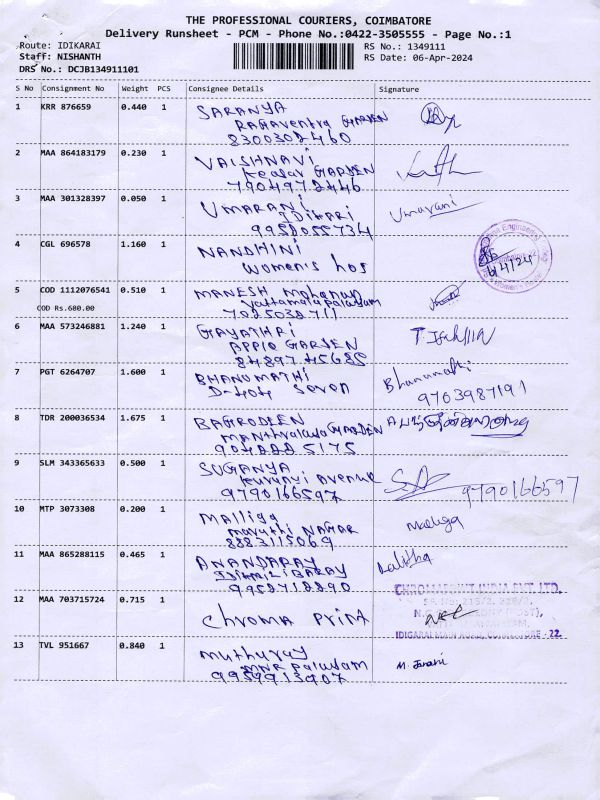 THE PROFESSIONAL COURIERS, COIMBATORE
Delivery Runsheet - PCM - Phone No.:0422-3505555 - Page No.:1
Route: IDIKARAI
RS No.: 1349111
Staff: NISHANTH
RS Date: 06-Apr-2024
DRS No.: DCJB134911101
S No Consignment No Weight PCS Consignee Details Signature
1 KRR 876659 0.440 1 SARANYA
Ragaventra GARDEN
8300302460
2 MAA 864183179 0.230 1 VAISHNAVI
Kealav GARDEN
7904972446
3 MAA 301328397 0.050 1 UMARANI Umarani
IDIKARI
9952055734
4 CGL 696578 1.160 1 NANDHINI
women's hos
5 COD 1112076541 0.510 1 MANESH Mohanan
COD Rs.680.00
Vattamalapalayam
7025038711
6 MAA 573246881 1.240 1 GAYATHRI
APPLE GARDEN
8489745685
7 PGT 6264707 1.600 1 BHANUMATHI Bhanumathi
D-404 Seven 9703987191
8 TDR 200036534 1.675 1 BAGRODEEN
GARDEN
9042225175
9 SLM 343365633 0.500 1 SUGANYA
Kurunji Avenue
9790166597 9790166597
10 MTP 3073308 0.200 1 Malliga Malliga
maruthi NAGAR
8883115069
11 MAA 865288115 0.465 1 ANANDARAY Lalitha
9952718890
12 MAA 703715724 0.715 1 chroma Print
CHROMAPRINT INDIA PVT. LTD.
IDIGARAI MAIN ROAD, COIMBATORE - 22.
13 TVL 951667 0.840 1 Muthuray M. Janani
MNR Palayam
9959913907